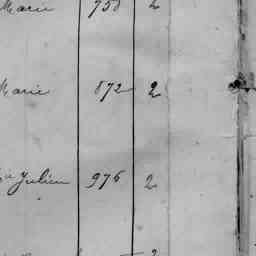 Marie 758 2
Marie 872 2
Julien 976 2
2